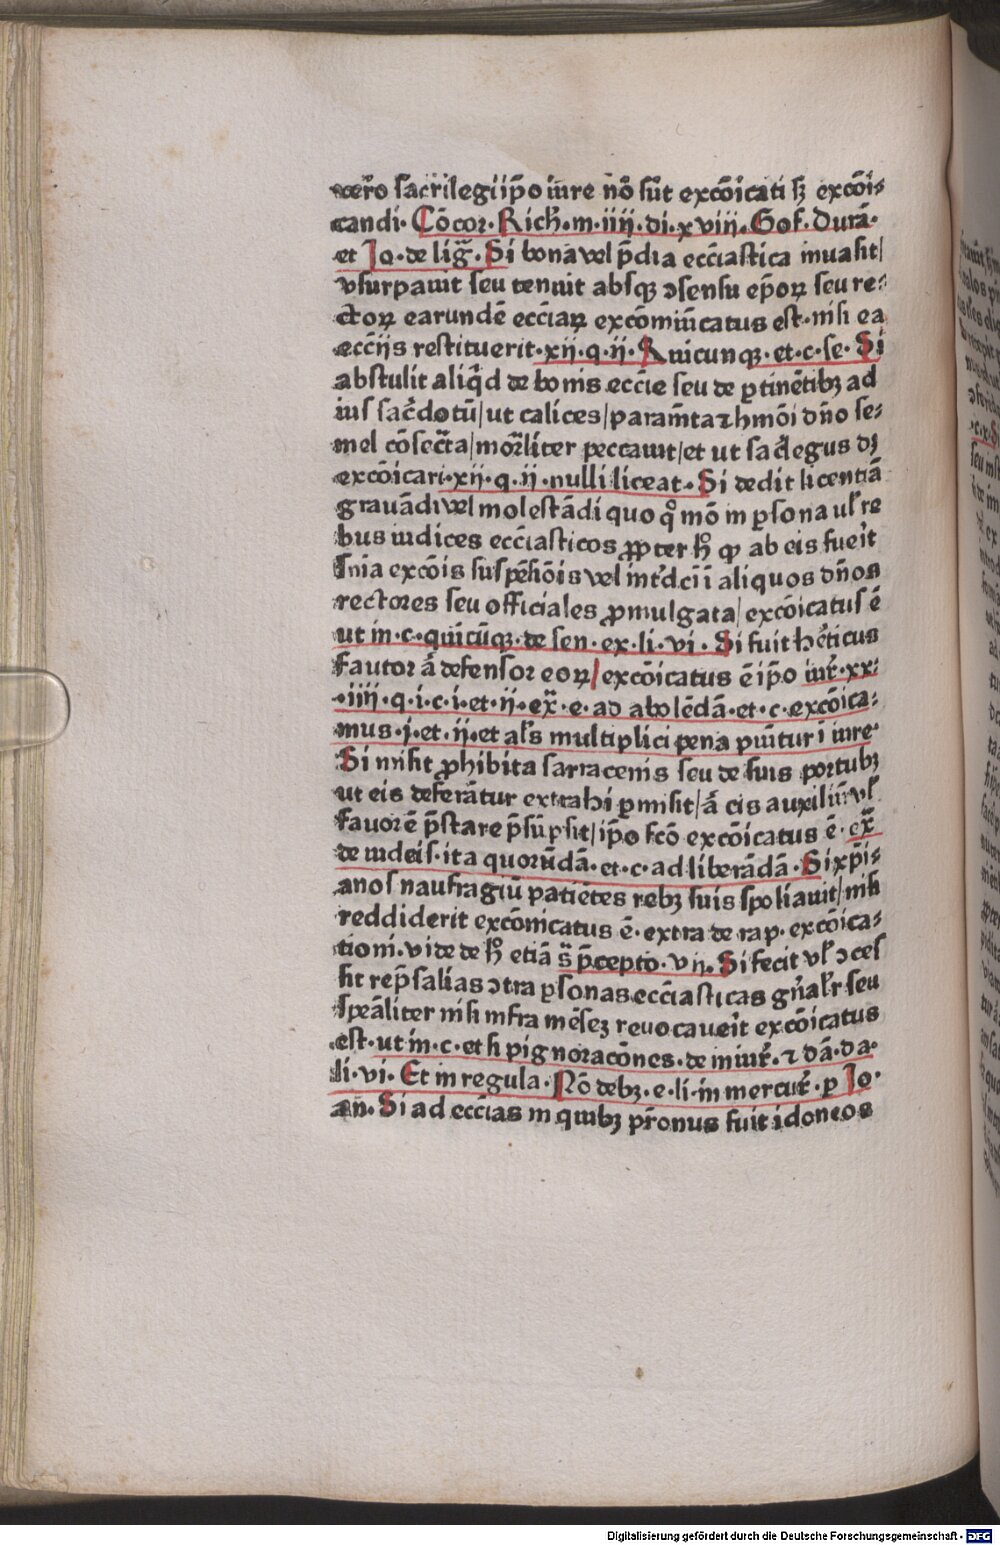 vero sacrilegi ip̄o iure nō sūt excōīcati sꝫ excōi⸗
candi. Cōcor. Rich. m. iiij. di. xviij. Gof. Durā.
et Jo. de lig̃. Si bona vel p̄dia ecc̄iastica inuasit/
vsurpauit seu tenuit absqꝫ ↄsensu ep̄oꝝ seu re⸗
ctoꝝ earundē ecc̄iaꝝ excōmūicatus est. nisi ea
ecc̄ijs restituerit. xij. q. ij. Quicunqꝫ. et. c. se. Si
abstulit aliq̄d de bonis eccīe seu de ꝑtinētibꝫ ad
ius sac̄dotū/ ut calices/ param̄ta ⁊ hmōi dn̄o se⸗
mel cōsec̄ta/ mor̄liter peccauit/ et ut sac̄legus dꝫ
excōicari. xij. q. ij. nulli liceat. Si dedit licentiā
grauādi vel molestādi quo qͦ mō in ꝑsona ul̓ re
bus iudices ecc̄iasticos ꝓpter hͦ ꝙ ab eis fuer̄it
s̄nia excōis suspēsiōis vel int̓dc̄i ī aliquos dn̄os
rectores seu officiales ꝓmulgata/ excōicatus ē
ut in. c. quicūqꝫ. de sen. ex. li. vi. Si fuit hēticus
fautor ā defensor eoꝝ/ excōicatus ē ip̄o iur̄. xx⸗
iiij. q. i. c. i. et. ij. ex̄. e. ad abolēdā. et. c. excōica⸗
mus. j. et. ij. et al̓s multiplici pena punītur ī iure
Si misit ꝓhibita sarracenis seu de suis portubꝫ
ut eis deferātur extrahi ꝑmisit/ ā eis auxiliū vl̓
fauorē p̄stare p̄sūpsit/ ip̄o fcō excōicatus ē. ex̄
de iudeis. ita quorūdā. et. c. ad liberādā. Si xp̄i⸗
anos naufragiū patiētes rebꝫ suis spoliauit/ nisi
reddiderit excōmicatus ē. extra de rap. excōica⸗
tioni. vide de hͦ etiā s̄ p̄cepto. vij. Si fecit vl̓ ↄces
sit rep̄salias ↄtra ꝑsonas ecc̄iasticas gn̄al̓r seu
speāliter nisi infra mēseꝫ reuocauer̄it excōicatus
est. ut in. c. et si pignoracōnes. de iniur̄. ⁊ dā. da.
li. vi. Et in regula. Nō debꝫ. e. li. in mercur̄. ꝑ Jo.
an. Si ad ecc̄ias in quibꝫ pr̄onus fuit idoneos
Digitalisierung gefördert durch die Deutsche Forschungsgemeinschaft - DFG